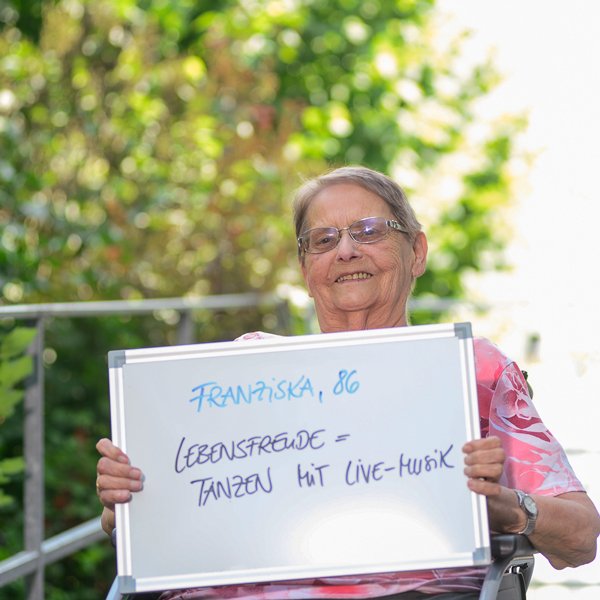 FRANZISKA, 86
LEBENSFREUDE =
TANZEN MIT LIVE-MUSIK